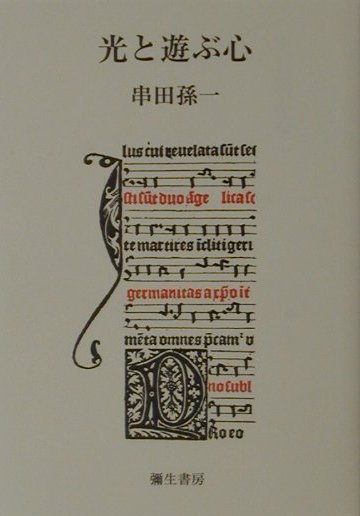 光と遊ぶ心
串田孫一
lus cui reuelata sūt sec
sti sūt duo āge lica sc
te martires īcliti geri
germanitas a xp̄o it
mēta omnes p̄cam² v
no subl
Ro eo
彌生書房